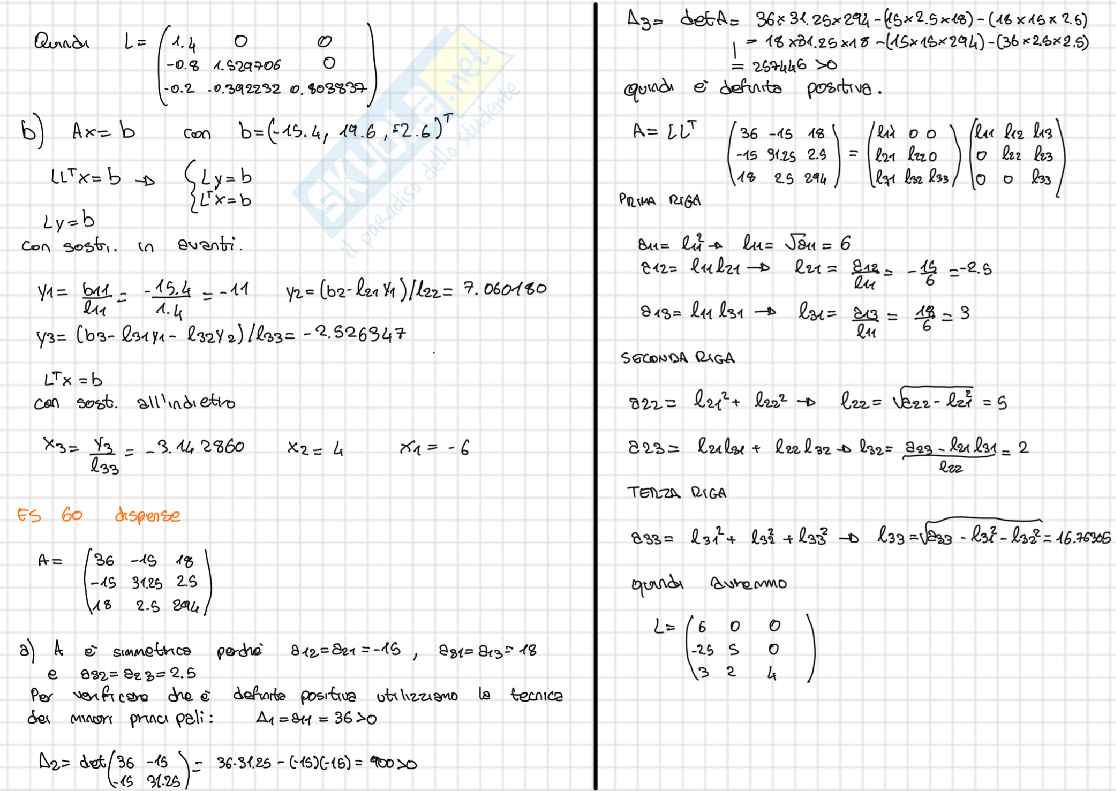 Quindi L= (1.4 0 0
-0.8 1.529706 0
-0.2 -0.392232 0.803837)
b) Ax=b con b=(-15.4, 19.6, -2.6)^T
LL^Tx=b → { Ly=b
L^Tx=b
Ly=b
con sosti. in avanti.
y1= b11/l11 = -15.4/1.4 = -11 y2=(b2-l21y1)/l22= 7.060180
y3= (b3-l31y1-l32y2)/l33= -2.526347
L^Tx=b
con sost. all'indietro
x3= y3/l33 = -3.142860 x2=4 x1=-6
ES 60 dispense
A= (36 -15 18
-15 31.25 2.5
18 2.5 294)
a) A è simmetrica perché a12=a21=-15, a31=a13=18
e a32=a23=2.5
Per verificare che è definita positiva utilizziamo la tecnica
dei minori principali: Δ1=a11=36>0
Δ2= det(36 -15
-15 31.25) = 36·31.25-(-15)(-15)=900>0
Δ3= detA= 36×31.25×294-(15×2.5×18)-(18×15×2.5)
-18×31.25×18-(15×15×294)-(36×2.5×2.5)
= 257446>0
quindi è definita positiva.
A= LL^T (36 -15 18
-15 31.25 2.5
18 2.5 294) = (l11 0 0
l21 l22 0
l31 l32 l33) (l11 l12 l13
0 l22 l23
0 0 l33)
PRIMA RIGA
a11= l11² → l11= √a11 = 6
a12= l11l21 → l21= a12/l11 = -15/6 = -2.5
a13= l11l31 → l31= a13/l11 = 18/6 = 3
SECONDA RIGA
a22= l21²+l22² → l22= √(a22-l21²) = 5
a23= l21l31+l22l32 → l32= (a23-l21l31)/l22 = 2
TERZA RIGA
a33= l31²+l32²+l33² → l33=√(a33-l31²-l32²)=16.76305
quindi avremo
L= (6 0 0
-2.5 5 0
3 2 4)
SKUOLA.net
il paradiso dello studente